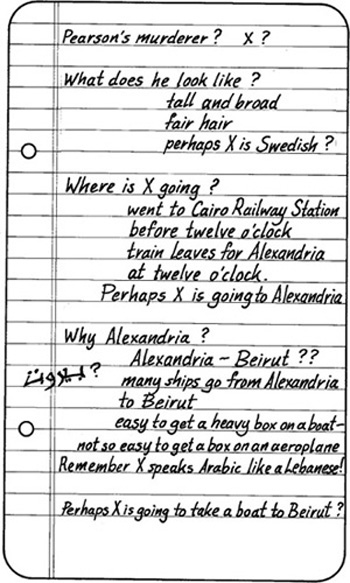 Pearson's murderer ? X ?
What does he look like ?
tall and broad
fair hair
perhaps X is Swedish ?
Where is X going ?
went to Cairo Railway Station
before twelve o'clock
train leaves for Alexandria
at twelve o'clock.
Perhaps X is going to Alexandria
Why Alexandria ?
Alexandria – Beirut ??
بيروت ?
many ships go from Alexandria
to Beirut
easy to get a heavy box on a boat –
not so easy to get a box on an aeroplane
Remember X speaks Arabic like a Lebanese!
Perhaps X is going to take a boat to Beirut ?